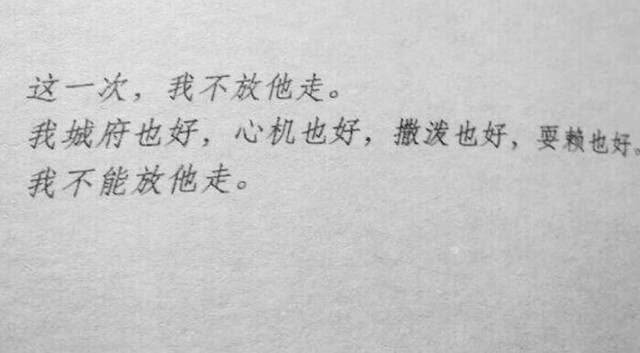 这一次，我不放他走。
我城府也好，心机也好，撒泼也好，耍赖也好。
我不能放他走。